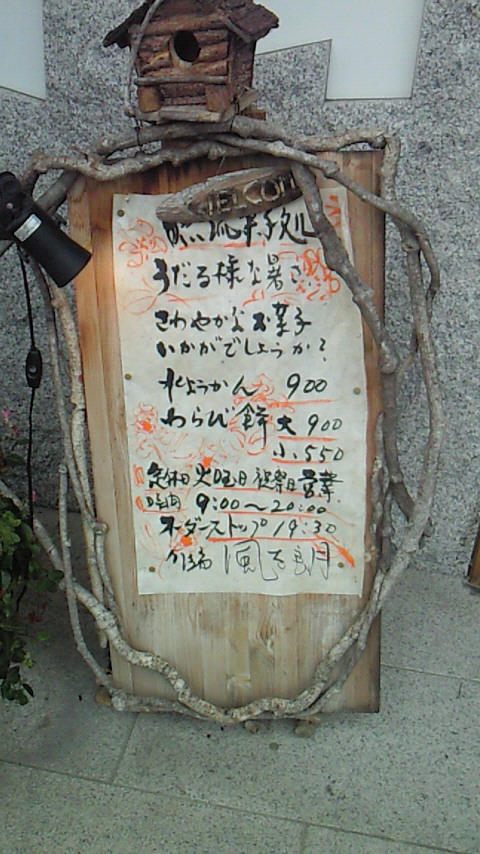 WELCOM
うだる様な暑さ
さわやかなお菓子
いかがでしょうか?
水ようかん 900
わらび餅 大 900
小 550
定休日 火曜日 祝祭日営業
時間 9:00〜20:00
オーダーストップ 19:30